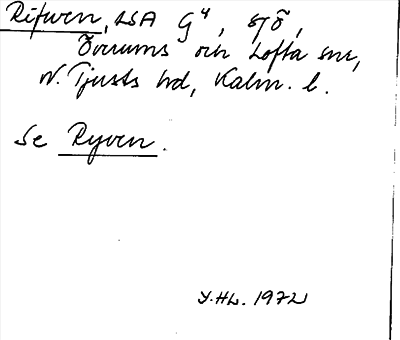 Rifwen, LSA G4, sjö,
Överums och Lofta snr,
N. Tjusts hd, Kalm. l.
Se Ryven.
Y.HL. 1972